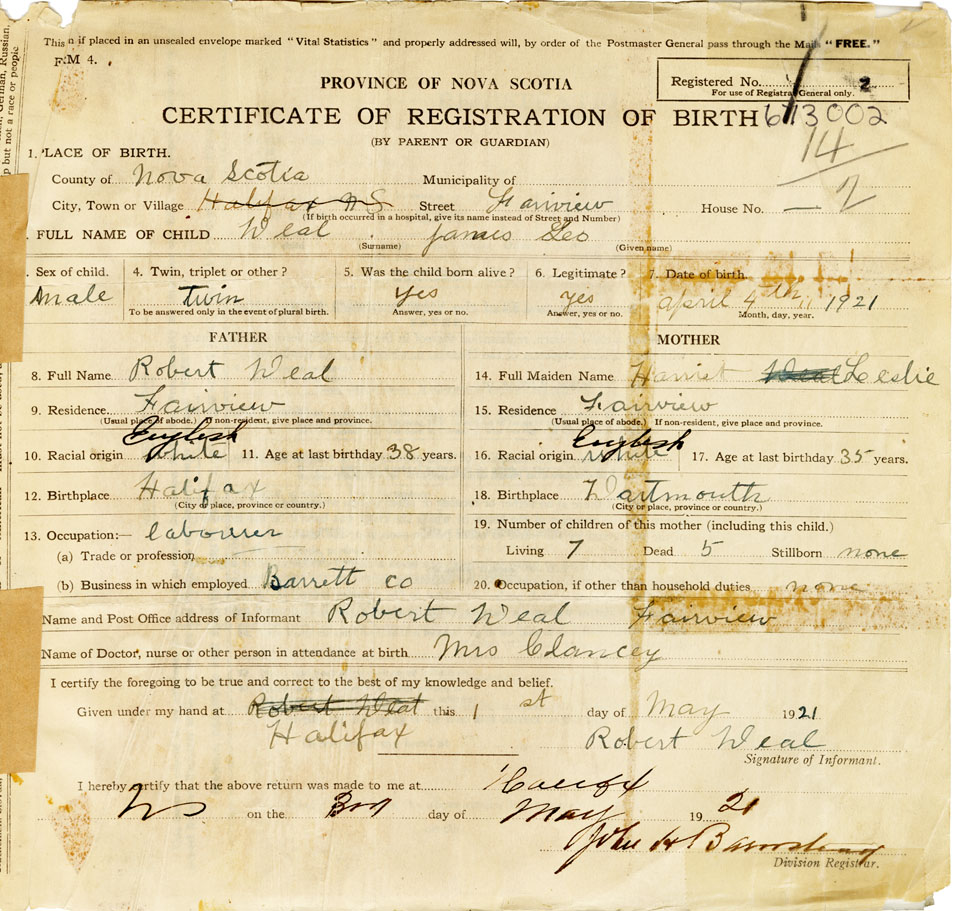 German, Russian,
p but not a race or people
This n if placed in an unsealed envelope marked "Vital Statistics" and properly addressed will, by order of the Postmaster General pass through the Mails "FREE."
F M 4.
PROVINCE OF NOVA SCOTIA
Registered No. 2
For use of Registrar General only.
CERTIFICATE OF REGISTRATION OF BIRTH 613002
(BY PARENT OR GUARDIAN)
14
2
1. LACE OF BIRTH.
County of Nova Scotia Municipality of
City, Town or Village Halifax NS Street Fairview House No. —
(If birth occurred in a hospital, give its name instead of Street and Number)
. FULL NAME OF CHILD Weal James Leo
(Surname) (Given name)
. Sex of child. 4. Twin, triplet or other? 5. Was the child born alive? 6. Legitimate? 7. Date of birth.
Male twin yes yes April 4th 1921
To be answered only in the event of plural birth. Answer, yes or no. Answer, yes or no. Month, day, year.
FATHER MOTHER
8. Full Name Robert Weal 14. Full Maiden Name Harriet Weal Leslie
9. Residence Fairview 15. Residence Fairview
(Usual place of abode.) If non-resident, give place and province. (Usual place of abode.) If non-resident, give place and province.
English English
10. Racial origin white 11. Age at last birthday 38 years. 16. Racial origin white 17. Age at last birthday 35 years.
12. Birthplace Halifax 18. Birthplace Dartmouth
(City or place, province or country.) (City or place, province or country.)
13. Occupation:— labourer 19. Number of children of this mother (including this child.)
(a) Trade or profession Living 7 Dead 5 Stillborn none
(b) Business in which employed Barrett Co 20. Occupation, if other than household duties none
Name and Post Office address of Informant Robert Weal Fairview
Name of Doctor, nurse or other person in attendance at birth Mrs Clancey
I certify the foregoing to be true and correct to the best of my knowledge and belief.
Given under my hand at Robert Weal this 1 st day of May 1921
Halifax Robert Weal
Signature of Informant.
I hereby certify that the above return was made to me at Halifax
NS on the 3rd day of May 1921
John H
Division Registrar.